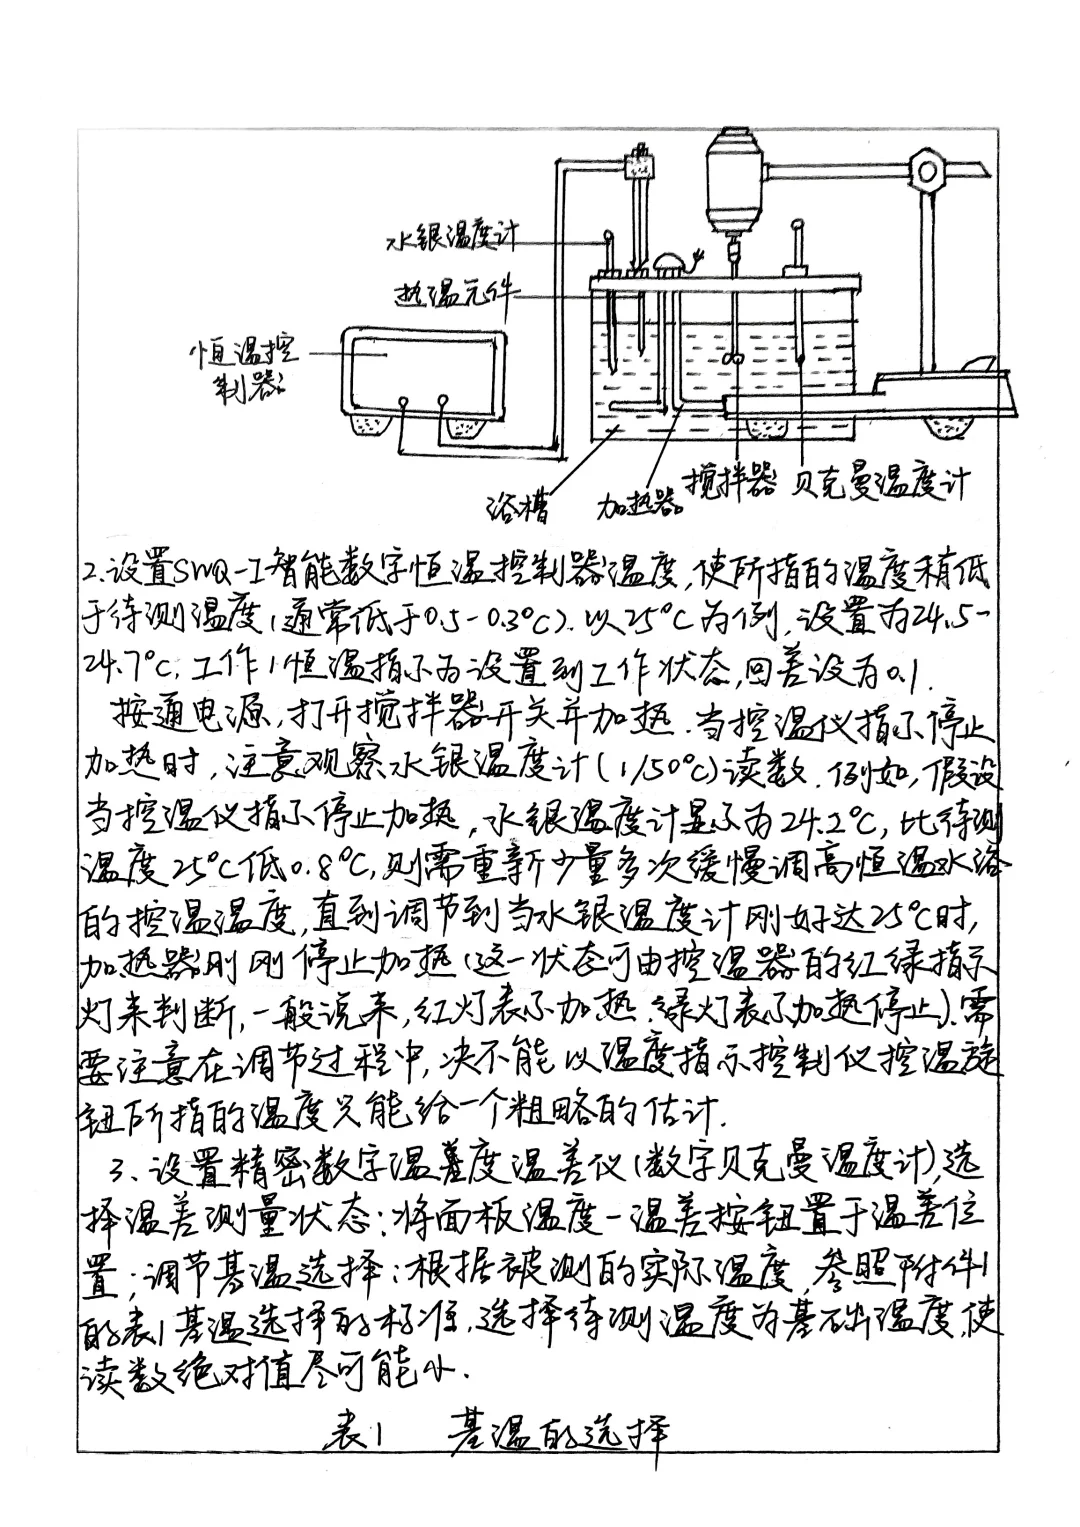 水银温度计
热温元件
恒温控
制器
浴槽
加热器
搅拌器
贝克曼温度计
2.设置SWQ-I智能数字恒温控制器温度,使所指的温度稍低
于待测温度(通常低于0.5-0.3℃).以25℃为例,设置为24.5-
24.7℃,工作/恒温指示为设置到工作状态,回差设为0.1.
按通电源,打开搅拌器开关并加热.当控温仪指示停止
加热时,注意观察水银温度计(1/50℃)读数.例如,假设
当控温仪指示停止加热,水银温度计显示为24.2℃,比待测
温度25℃低0.8℃,则需重新少量多次缓慢调高恒温水浴
的控温温度,直到调节到当水银温度计刚好达25℃时,
加热器刚刚停止加热(这一状态可由控温器的红绿指示
灯来判断,一般说来,红灯表示加热.绿灯表示加热停止).需
要注意在调节过程中,决不能以温度指示控制仪控温旋
钮所指的温度只能给一个粗略的估计.
3、设置精密数字温度温差仪(数字贝克曼温度计),选
择温差测量状态:将面板温度-温差按钮置于温差位
置;调节基温选择:根据被测的实际温度,参照附件1
的表1基温选择的标准,选择待测温度为基础温度,使
读数绝对值尽可能小.
表1 基温的选择